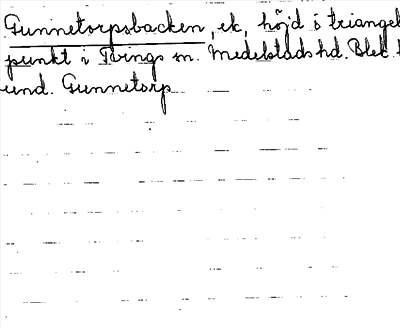 Gunnetorpsbacken, ek, höjd o triangel
punkt i Tvings sn. Medelstads hd. Blek. l
und. Gunnetorp